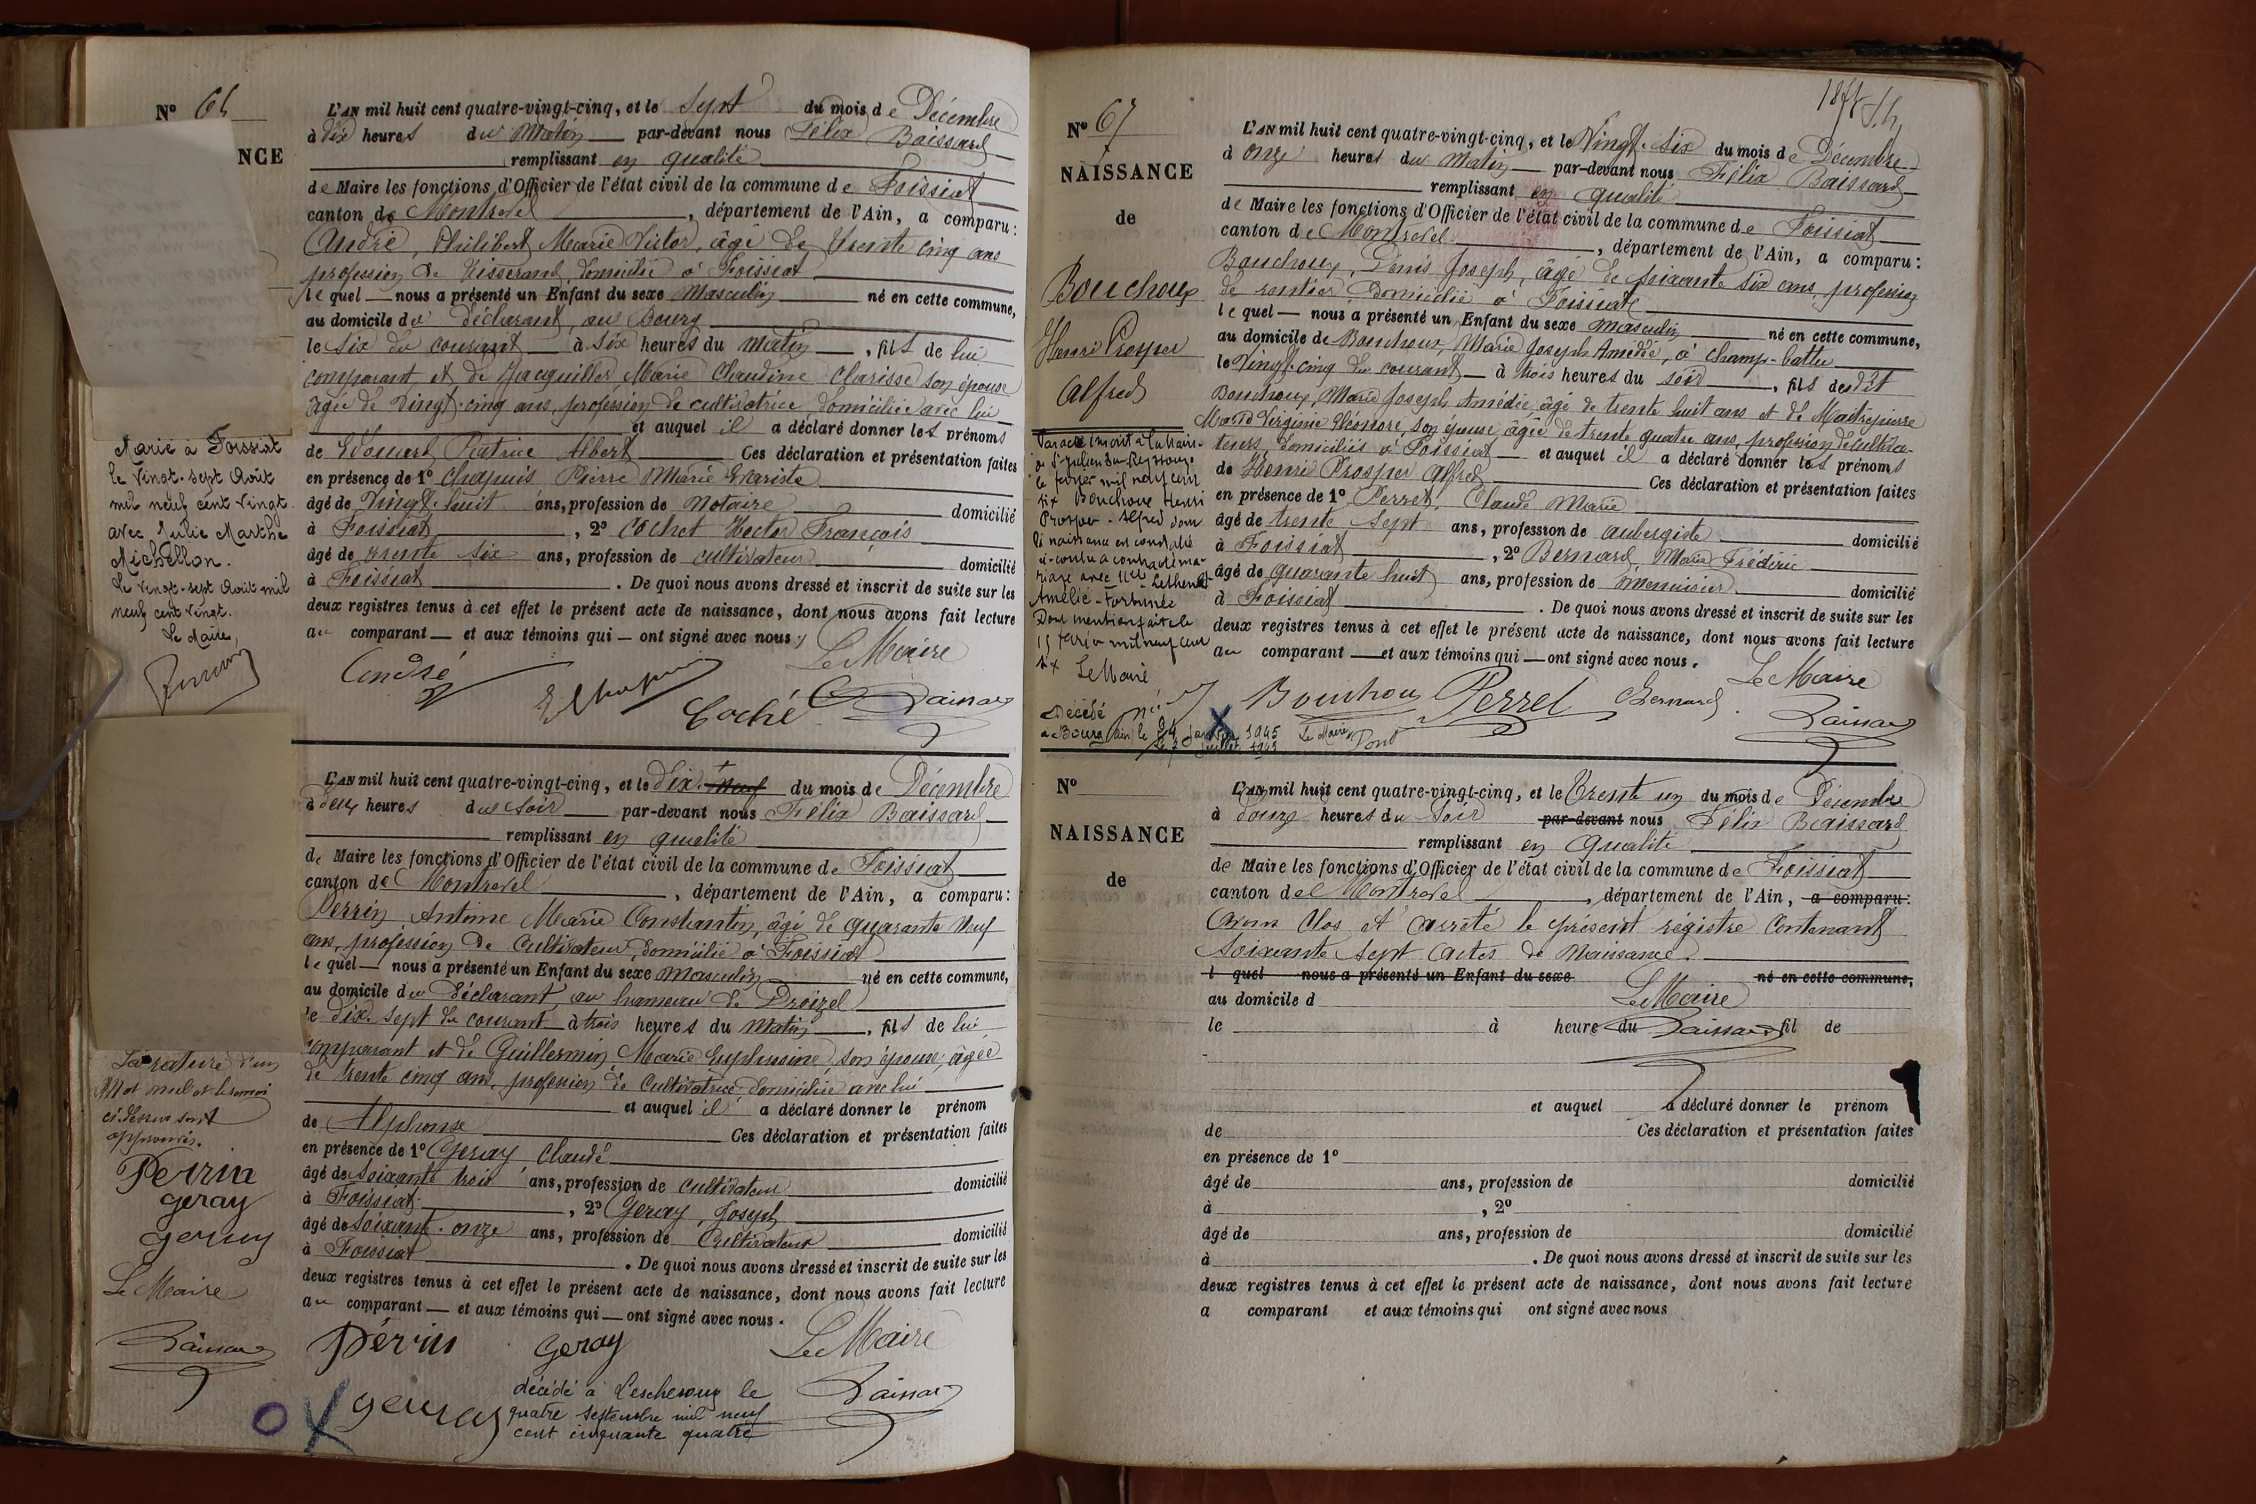 Nº 65
NCE
L'AN mil huit cent quatre-vingt-cinq, et le Sept du mois de Décembre
à dix heures du Matin par-devant nous Félix Baissard
remplissant en qualité
de Maire les fonctions d'Officier de l'état civil de la commune de Foissiat
canton de Montrevel, département de l'Ain, a comparu:
André, Philibert Marie Victor, âgé de trente cinq ans
profession de Tisserand, domicilié à Foissiat
lequel nous a présenté un Enfant du sexe Masculin né en cette commune,
au domicile du déclarant, au Bourg
le six du courant à six heures du matin, fils de lui
comparant et de Jacquillet Marie Claudine Clarisse son épouse
âgée de vingt-cinq ans, profession de cultivatrice, domiciliée avec lui
et auquel il a déclaré donner les prénoms
de Edouard Patrice Albert Ces déclaration et présentation faites
en présence de 1º Chapuis Pierre Marie Evariste
âgé de vingt-huit ans, profession de Notaire domicilié
à Foissiat, 2º Cochet Hector François
âgé de trente six ans, profession de cultivateur domicilié
à Foissiat. De quoi nous avons dressé et inscrit de suite sur les
deux registres tenus à cet effet le présent acte de naissance, dont nous avons fait lecture
au comparant et aux témoins qui ont signé avec nous
André
Cochet
Le Maire
Baissard
Marié à Foissiat
le Vingt-sept Août
mil neuf cent Vingt
avec Julie Marthe
Michellon.
Le Vingt-sept Août mil
neuf cent Vingt.
Le Maire,
L'AN mil huit cent quatre-vingt-cinq, et le dix-neuf du mois de Décembre
à deux heures du soir par-devant nous Félix Baissard
remplissant en qualité
de Maire les fonctions d'Officier de l'état civil de la commune de Foissiat
canton de Montrevel, département de l'Ain, a comparu:
Perrin Antoine Marie Constantin, âgé de quarante neuf
ans, profession de Cultivateur, domicilié à Foissiat
lequel nous a présenté un Enfant du sexe Masculin né en cette commune,
au domicile du déclarant, au hameau de Droizel
le dix-sept du courant à trois heures du matin, fils de lui
comparant et de Guillermin, Marie Euphrosine, son épouse, âgée
de trente cinq ans, profession de Cultivatrice, domiciliée avec lui
et auquel il a déclaré donner le prénom
de Alphonse Ces déclaration et présentation faites
en présence de 1º Geray Claude
âgé de soixante trois ans, profession de cultivateur domicilié
à Foissiat, 2º Geray, Joseph
âgé de soixante-onze ans, profession de Cultivateur domicilié
à Foissiat. De quoi nous avons dressé et inscrit de suite sur les
deux registres tenus à cet effet le présent acte de naissance, dont nous avons fait lecture
au comparant et aux témoins qui ont signé avec nous.
Perrin Geray Le Maire
Geray Baissard
décédé à Lescheroux le
quatre septembre mil neuf
cent cinquante quatre
La rature d'un
Mot nul et le renvoi
ci-dessus sont
approuvés.
Perrin
Geray
Geray
Le Maire
Baissard
Nº 67
NAISSANCE
de
Bouchoux
Henri Prosper
Alfred
L'AN mil huit cent quatre-vingt-cinq, et le Vingt-six du mois de Décembre
à onze heures du Matin par-devant nous Félix Baissard
remplissant en qualité
de Maire les fonctions d'Officier de l'état civil de la commune de Foissiat
canton de Montrevel, département de l'Ain, a comparu:
Bouchoux, Denis Joseph, âgé de soixante six ans, profession
de rentier, domicilié à Foissiat
lequel nous a présenté un Enfant du sexe masculin né en cette commune,
au domicile de Bouchoux, Marie Joseph Amédée, à Champ-battu
le Vingt-cinq du courant à trois heures du soir, fils dudit
Bouchoux, Marie Joseph Amédée, âgé de trente huit ans et de Maitrepierre
Marie Virginie Eléonore, son épouse âgée de trente quatre ans, profession de cultiva-
teurs, domiciliés à Foissiat et auquel il a déclaré donner les prénoms
de Henri Prosper Alfred Ces déclaration et présentation faites
en présence de 1º Perret, Claude Marie
âgé de trente sept ans, profession de aubergiste domicilié
à Foissiat, 2º Bernard, Marie Frédéric
âgé de quarante huit ans, profession de menuisier domicilié
à Foissiat. De quoi nous avons dressé et inscrit de suite sur les
deux registres tenus à cet effet le présent acte de naissance, dont nous avons fait lecture
au comparant et aux témoins qui ont signé avec nous.
Bouchoux Perret Bernard Le Maire
Baissard
Par acte inscrit à la Mairie
de St Julien sur Reyssouze
le février mil neuf cent
dix Bouchoux Henri
Prosper-Alfred dont
la naissance est constatée
ci-contre a contracté ma-
riage avec Mlle
Amélie-Fortunée
Dont mention faite le
15 février mil neuf cent
dix Le Maire
Décédé
à Bourg (Ain) le 1945
Le Maire
Nº
NAISSANCE
de
L'AN mil huit cent quatre-vingt-cinq, et le Trente un du mois de Décembre
à douze heures du Soir par-devant nous Félix Baissard
remplissant en Qualité
de Maire les fonctions d'Officier de l'état civil de la commune de Foissiat
canton de Montrevel, département de l'Ain, a comparu:
Avons Clos et arrêté le présent régistre Contenant
Soixante Sept Actes de Naissance.
l quel nous a présenté un Enfant du sexe né en cette commune,
au domicile d Le Maire
le à heure du Baissard fil de
et auquel a déclaré donner le prénom
de Ces déclaration et présentation faites
en présence de 1º
âgé de ans, profession de domicilié
à , 2º
âgé de ans, profession de domicilié
à . De quoi nous avons dressé et inscrit de suite sur les
deux registres tenus à cet effet le présent acte de naissance, dont nous avons fait lecture
a comparant et aux témoins qui ont signé avec nous